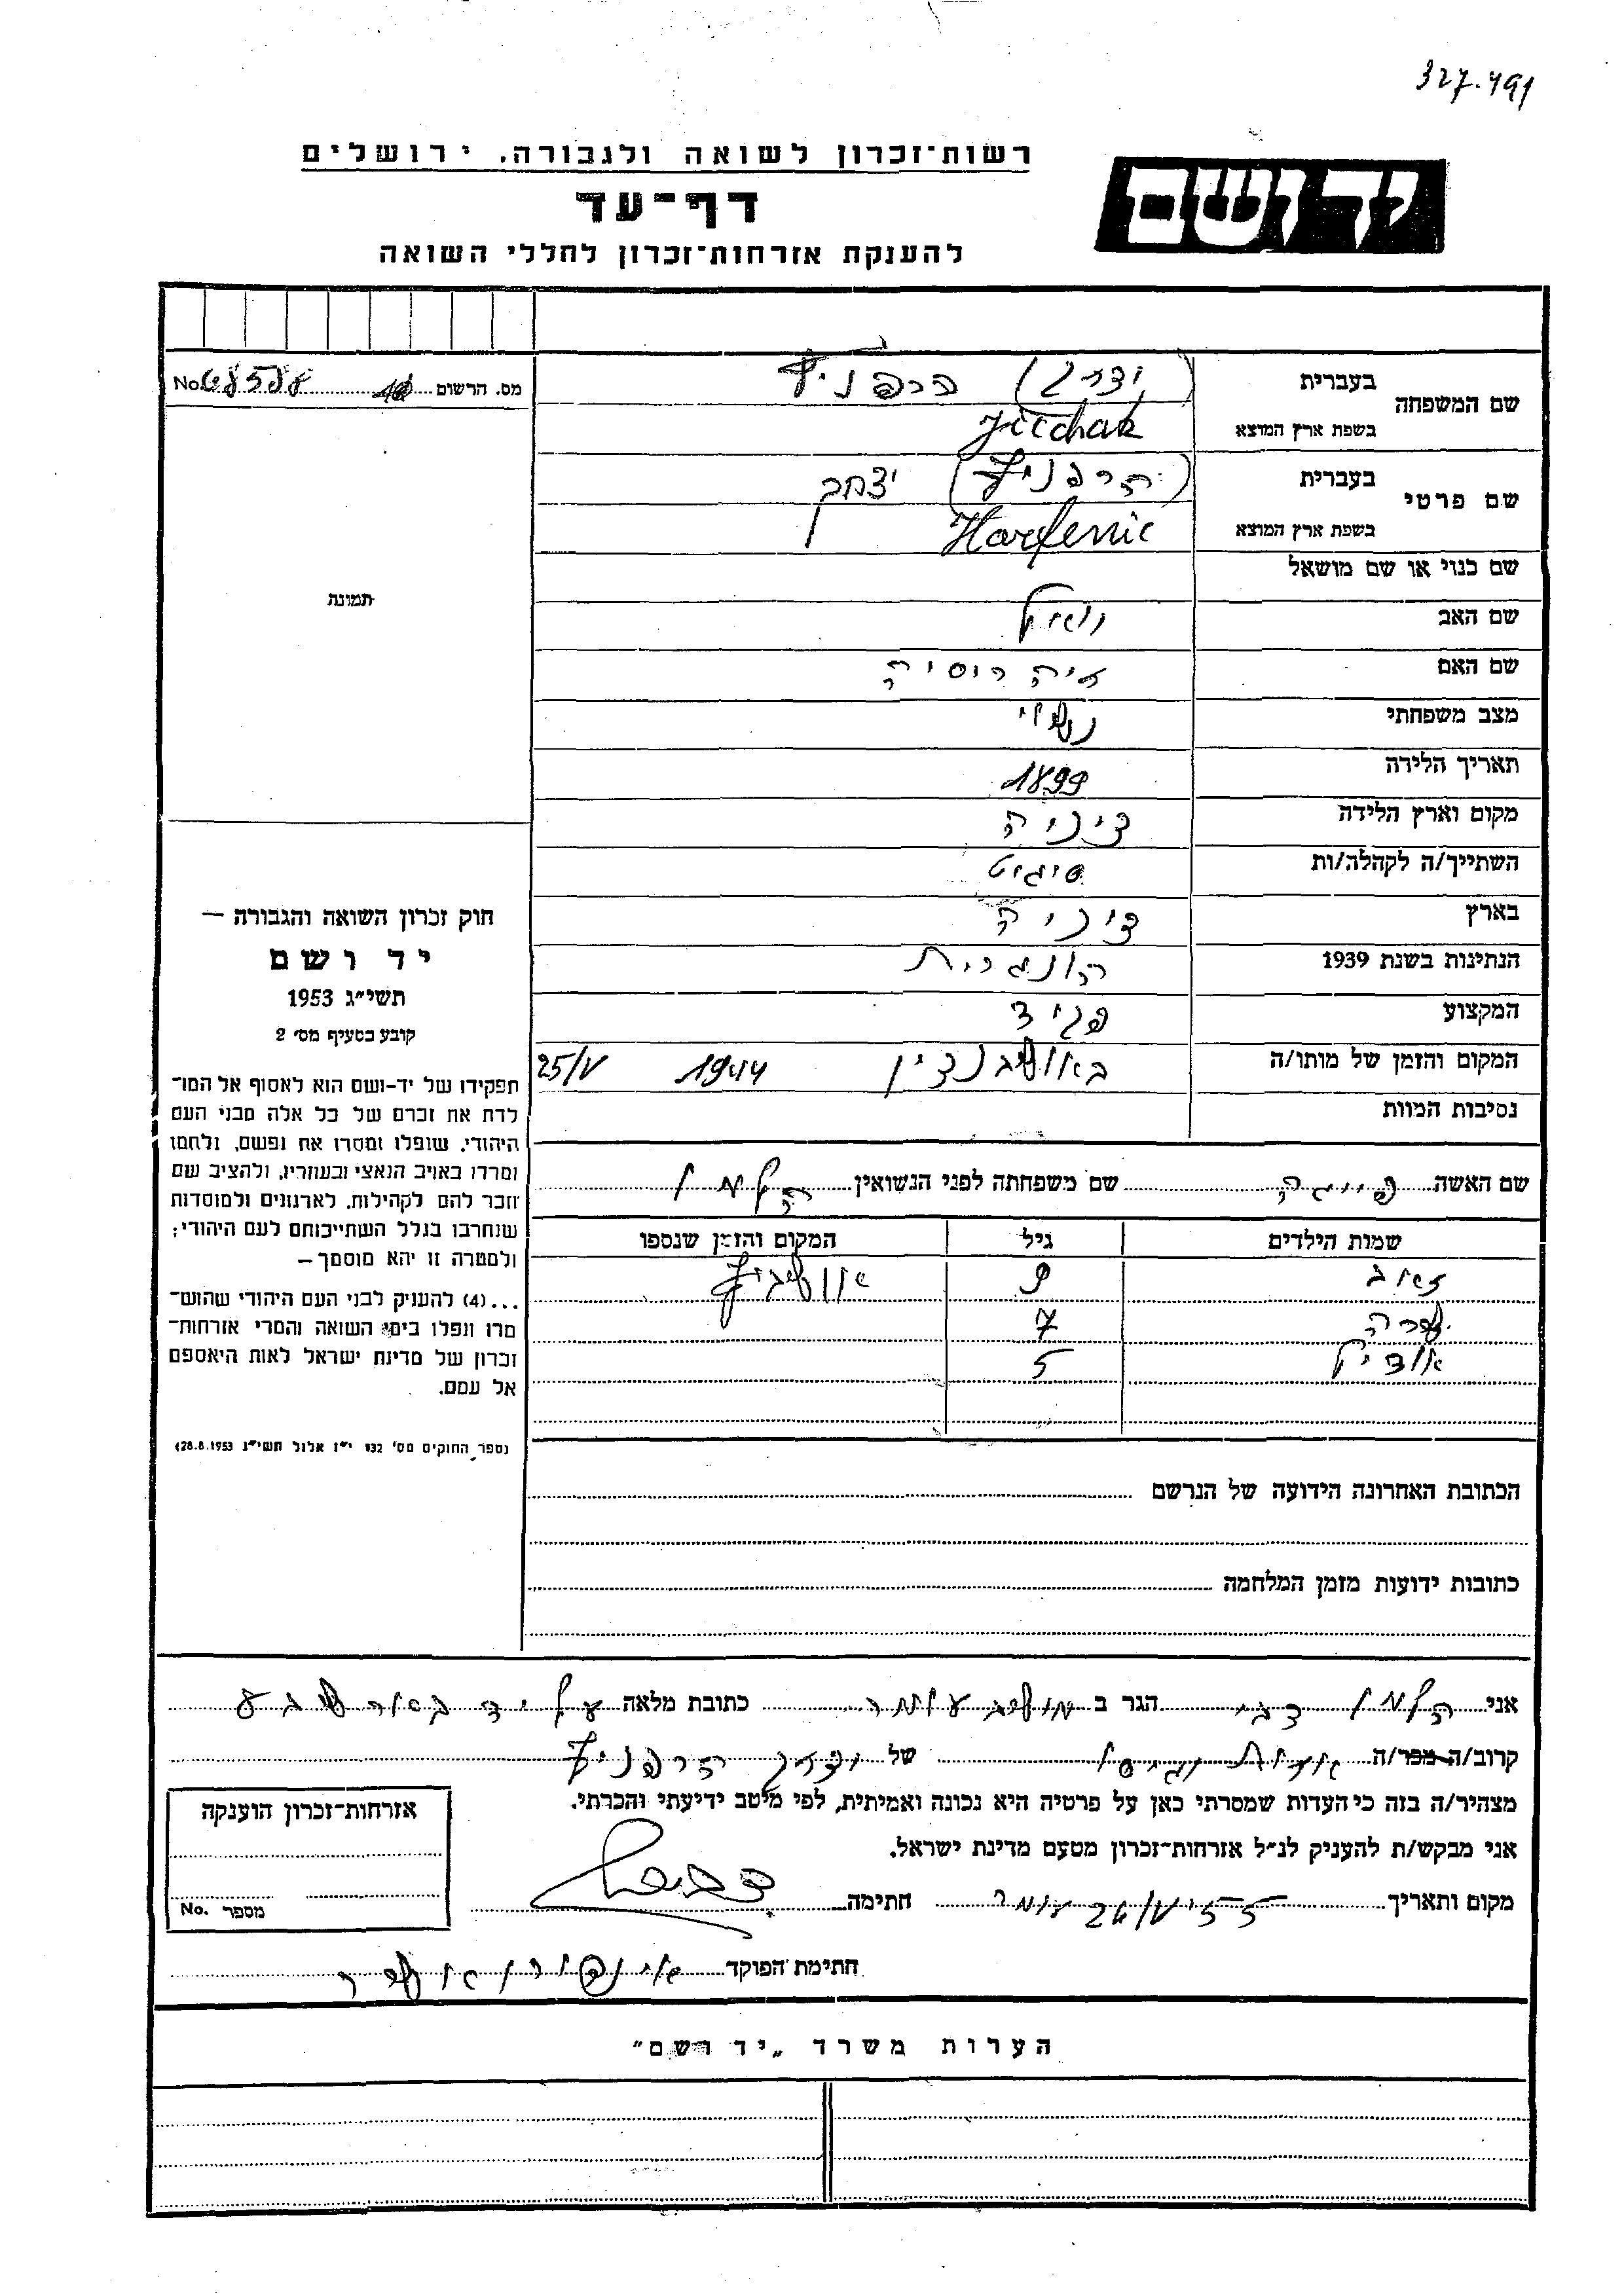 327.491
רשות־זכרון לשואה ולגבורה, ירושלים
יד ושם
דף־עד
להענקת אזרחות־זכרון לחללי השואה
מס. הרשום No
שם המשפחה
בעברית הרפניץ
בשפת ארץ המוצא Jitchak
שם פרטי
בעברית (הרפניץ) יצחק
בשפת ארץ המוצא Harfenic
שם כנוי או שם מושאל
שם האב
שם האם חיה
מצב משפחתי נשוי
תאריך הלידה 1899
מקום וארץ הלידה
השתייך/ה לקהלה/ות סיגיט
בארץ
הנתינות בשנת 1939 הונגרית
המקצוע
המקום והזמן של מותו/ה 1944 25/V
נסיבות המוות
תמונה
חוק זכרון השואה והגבורה —
יד ושם
תשי״ג 1953
קובע בסעיף מס׳ 2
תפקידו של יד-ושם הוא לאסוף אל המו־
לדת את זכרם של כל אלה מבני העם
היהודי, שנפלו ומסרו את נפשם, נלחמו
ומרדו באויב הנאצי ובעוזריו, ולהציב שם
וזכר להם לקהילות, לארגונים ולמוסדות
שנחרבו בגלל השתייכותם לעם היהודי;
ולמטרה זו יהא מוסמך —
...(4) להעניק לבני העם היהודי שהוש־
מדו ונפלו בימי השואה והמרי אזרחות־
זכרון של מדינת ישראל לאות היאספם
אל עמם.
(ספר החוקים מס׳ 132 י״ז אלול תשי״ג 28.8.1953)
שם האשה פייגה שם משפחתה לפני הנשואין
שמות הילדים גיל המקום והזמן שנספו
זאב 9 אושביץ
שרה 7
5
הכתובת האחרונה הידועה של הנרשם
כתובות ידועות מזמן המלחמה
אני הגר ב מושב עומר כתובת מלאה על יד באר שבע
קרוב/ה מכר/ה של יצחק הרפניץ
מצהיר/ה בזה כי העדות שמסרתי כאן על פרטיה היא נכונה ואמיתית, לפי מיטב ידיעתי והכרתי.
אני מבקש/ת להעניק לנ״ל אזרחות־זכרון מטעם מדינת ישראל.
מקום ותאריך עומר חתימה
חתימת הפוקד
אזרחות־זכרון הוענקה
מספר No.
הערות משרד „יד ושם״